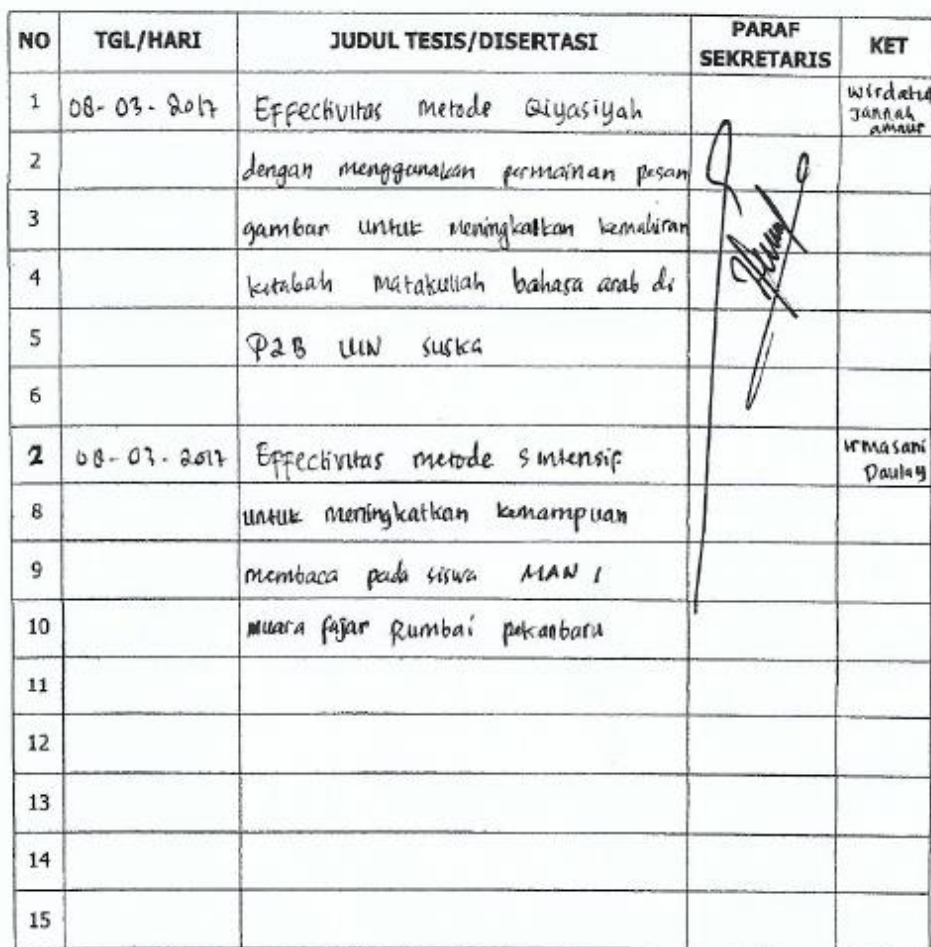 NO TGL/HARI JUDUL TESIS/DISERTASI PARAF SEKRETARIS KET
1 08-03-2017 Effectivitas metode Qiyasiyah Wirdatul Jannah
2 dengan menggunakan permainan pesan
3 gambar untuk meningkatkan kemahiran
4 kitabah matakuliah bahasa arab di
5 P2B UIN SUSKA
6
2 08-03-2017 Effectivitas metode Sintensif Irmasani Daulay
8 untuk meningkatkan kemampuan
9 membaca pada siswa MAN 1
10 muara fajar Rumbai pekanbaru
11
12
13
14
15